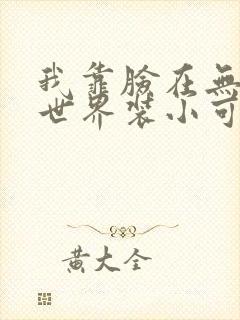 我靠臉在無
世界裝小可
黃大全